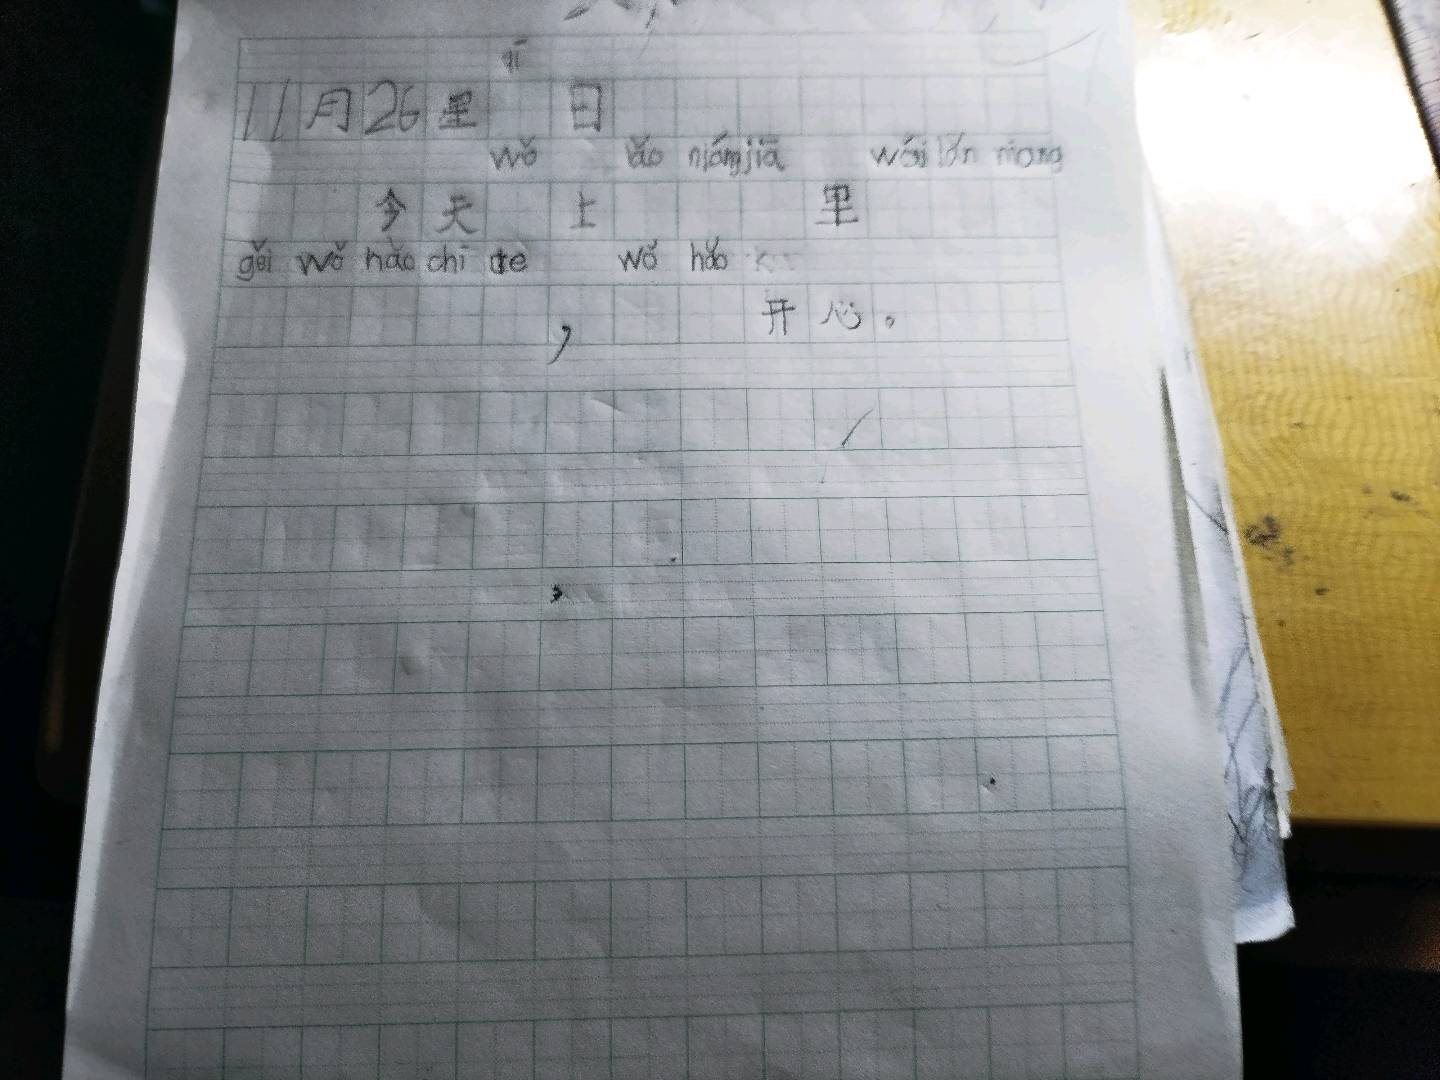 qī
11月26里 日
wǒ lǎo niángjiā wái lǎn niang
今天 上 里
gěi wǒ hǎo chī de wǒ hǎo
, 开心。